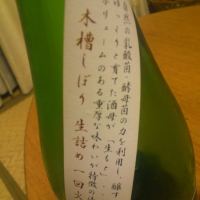 自然の乳酸菌・酵母菌の力を利用し、醸す
ゆっくりと育てた酒母が「生もと」
ボリュームのある重厚な味わいが特徴の
木槽しぼり 生詰め 一回火